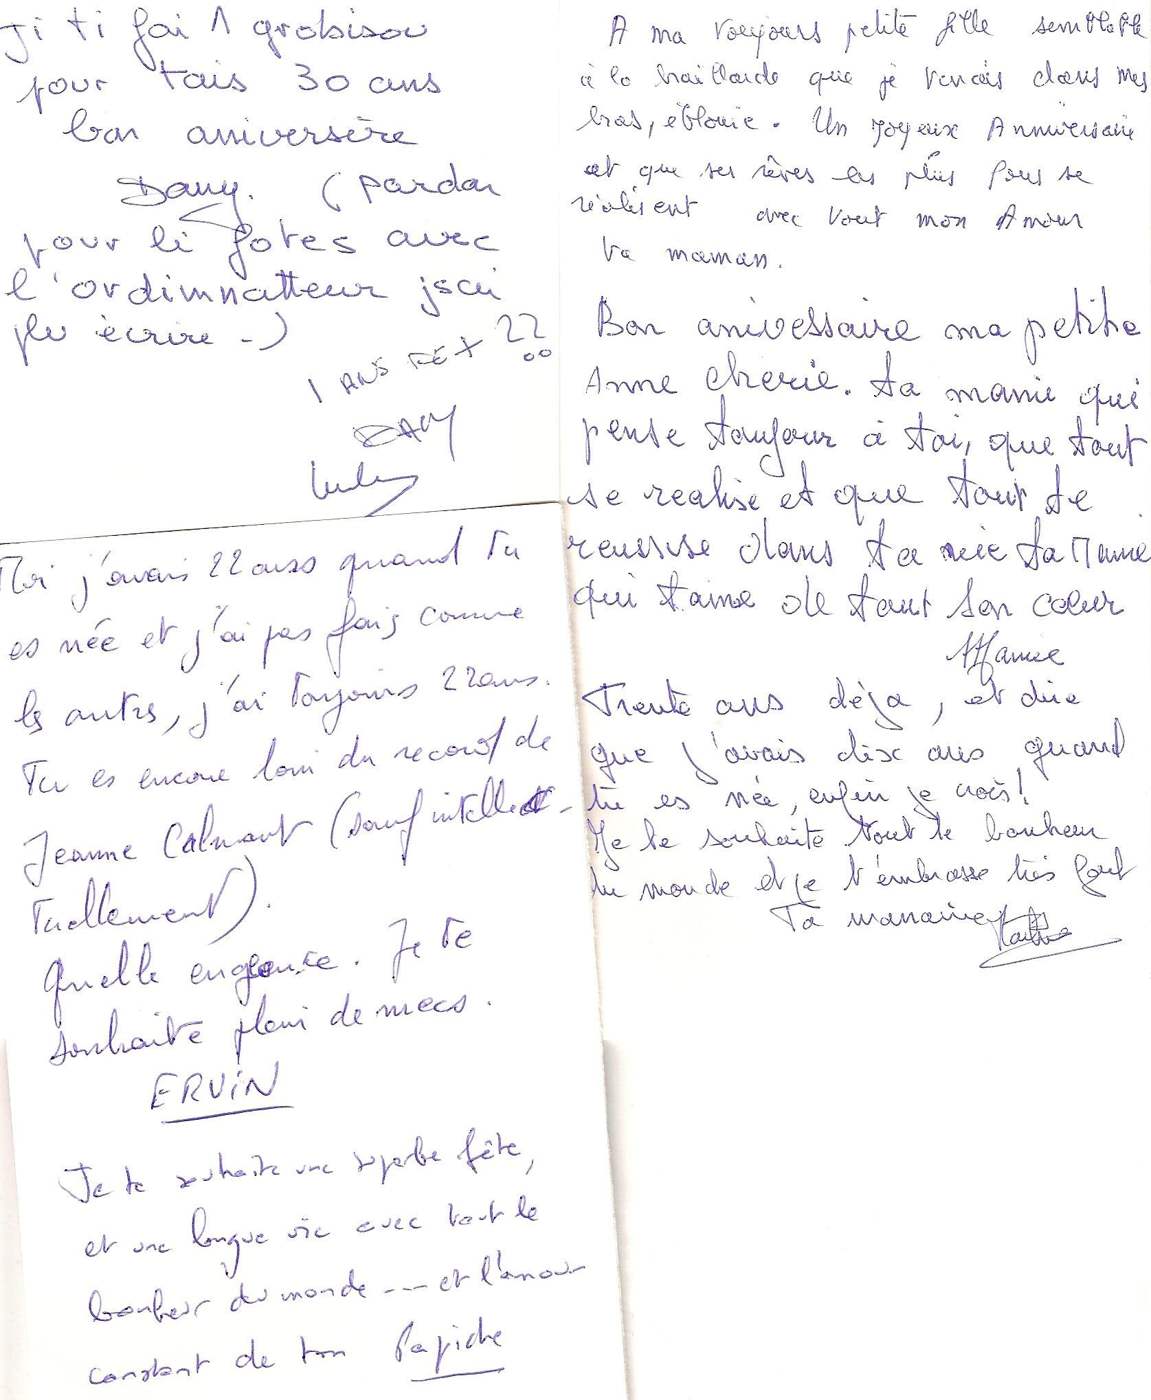 Ji ti fai 1 grobisou
pour tais 30 ans
bon aniversère
Dany. (pardon
pour li fotes avec
l'ordimnatteur jsai
plu ècrire -)
1 ANS FÉ + 22
DANY
Moi j'avais 22 ans quand tu
es née et j'ai pas fais comme
les autres, j'ai toujours 22 ans.
Tu es encore loin du record de
Jeanne Calmant (sauf intellec-
tuellement).
Quelle engeance. Je te
souhaite plein de mecs.
ERViN
Je te souhaite une superbe fête,
et une longue vie avec tout le
bonheur du monde --- et l'amour
constant de ton Papiche
A ma toujours petite fille semblable
à la braillarde que je tenais dans mes
bras, éblouie. Un Joyeux Anniversaire
et que ses rêves les plus fous se
réalisent avec tout mon Amour
ta maman.
Bon anivessaire ma petite
Anne cherie. ta manie qui
pense toujour à toi, que tout
se realise et que tout te
reussise dans ta vie ta Manie
qui t'aime de tout son coeur
Manie
Trente ans déja, et dire
que j'avais dix ans quand
tu es née, enfin je crois!
Je te souhaite tout le bonheur
du monde et je t'embrasse très fort
Ta marraine